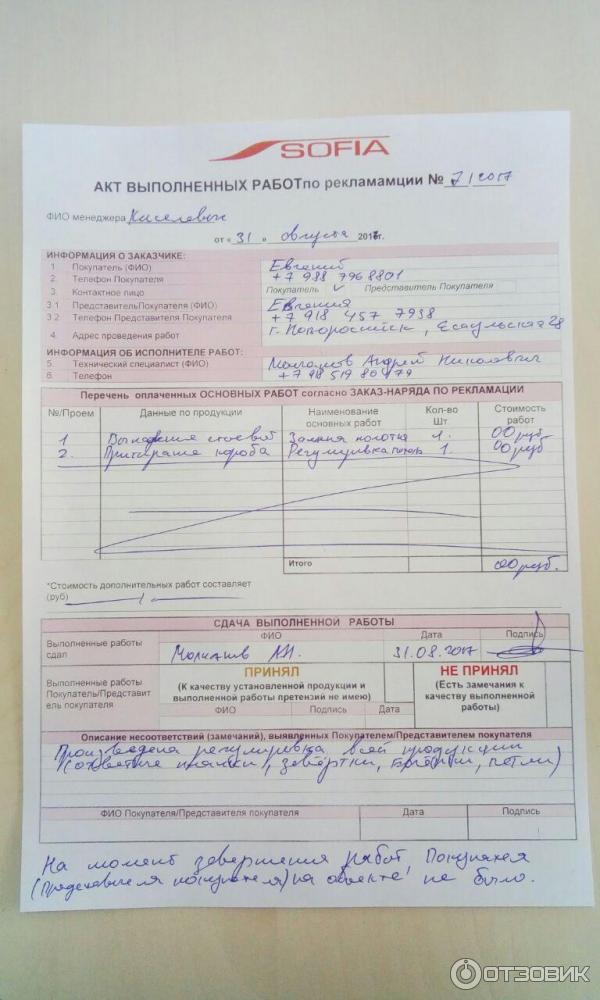 SOFIA
АКТ ВЫПОЛНЕННЫХ РАБОТпо рекламамции № 7/2017
ФИО менеджера
от « 31 » августа 2017г.
ИНФОРМАЦИЯ О ЗАКАЗЧИКЕ:
1 Покупатель (ФИО) Евгений
2. Телефон Покупателя +7 988 796 8801
3. Контактное лицо Покупатель ✓ Представитель Покупателя
3 1 ПредставительПокупателя (ФИО) Евгения
3 2 Телефон Представителя Покупателя +7 918 457 7938
4. Адрес проведения работ г. Новороссийск, Есаульская 28
ИНФОРМАЦИЯ ОБ ИСПОЛНИТЕЛЕ РАБОТ:
5. Технический специалист (ФИО) Андрей Николаевич
6. Телефон
Перечень оплаченных ОСНОВНЫХ РАБОТ согласно ЗАКАЗ-НАРЯДА ПО РЕКЛАМАЦИИ
№/Проем Данные по продукции Наименование основных работ Кол-во Шт Стоимость работ
1 Замена полотна 1. 00 руб
2. короба Регулировка 1. 00 руб
Итого 00 руб.
*Стоимость дополнительных работ составляет
(руб)
СДАЧА ВЫПОЛНЕННОЙ РАБОТЫ
ФИО Дата Подпись
Выполненные работы сдал А.Н. 31.08.2017
Выполненные работы Покупатель/Представитель покупателя
ПРИНЯЛ
(К качеству установленной продукции и выполненной работы претензий не имею)
ФИО Подпись Дата
НЕ ПРИНЯЛ
(Есть замечания к качеству выполненной работы)
Описание несоответствий (замечаний), выявленных Покупателем/Представителем покупателя
Произведена регулировка всей продукции
(ответные планки, завёртки, петли)
ФИО Покупателя/Представителя покупателя Дата Подпись
На момент завершения работ Покупателя
(Представителя покупателя) на объекте не было.
ОТЗОВИК